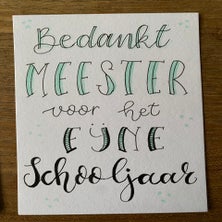 Bedankt
MEESTER
voor het
FIJNE
Schooljaar